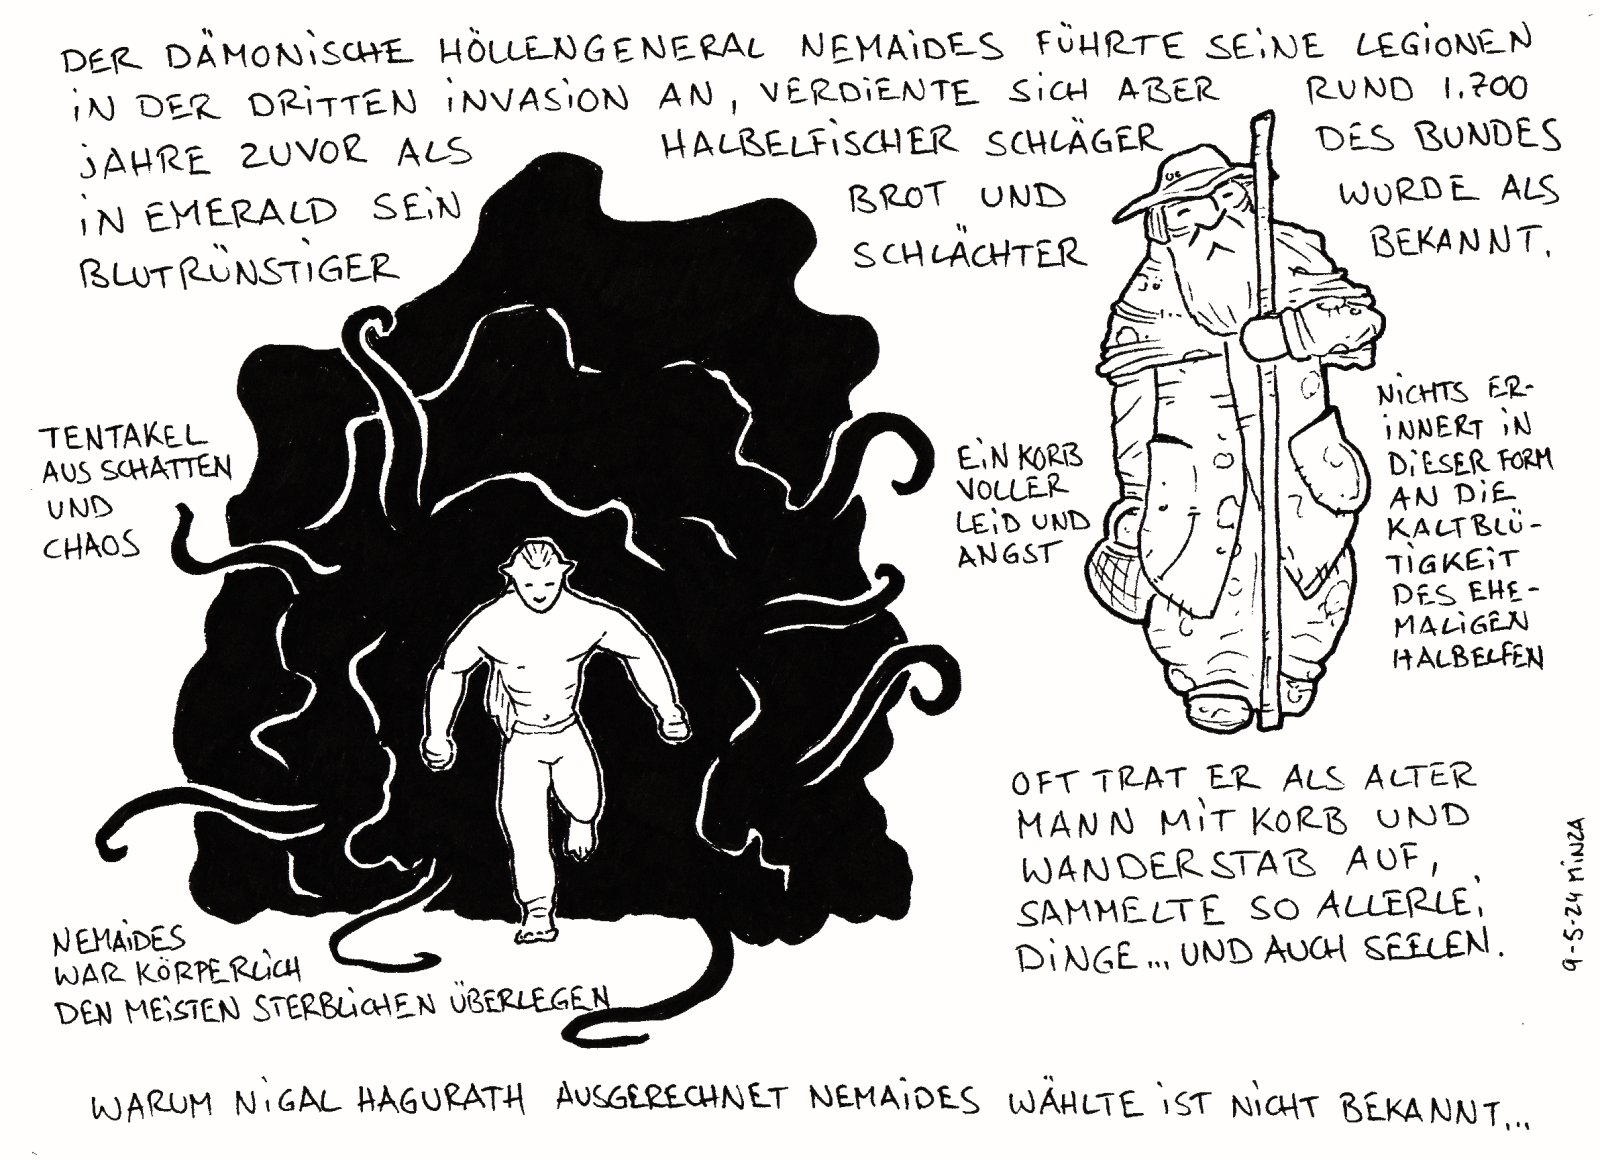 DER DÄMONISCHE HÖLLENGENERAL NEMAIDES FÜHRTE SEINE LEGIONEN
IN DER DRITTEN INVASION AN, VERDIENTE SICH ABER RUND 1.700
JAHRE ZUVOR ALS HALBELFISCHER SCHLÄGER DES BUNDES
IN EMERALD SEIN BROT UND WURDE ALS
BLUTRÜNSTIGER SCHLÄCHTER BEKANNT.
TENTAKEL
AUS SCHATTEN
UND
CHAOS
EIN KORB
VOLLER
LEID UND
ANGST
NICHTS ER-
INNERT IN
DIESER FORM
AN DIE
KALTBLÜ-
TIGKEIT
DES EHE-
MALIGEN
HALBELFEN
OFT TRAT ER ALS ALTER
MANN MIT KORB UND
WANDERSTAB AUF,
SAMMELTE SO ALLERLEI
DINGE... UND AUCH SEELEN.
NEMAIDES
WAR KÖRPERLICH
DEN MEISTEN STERBLICHEN ÜBERLEGEN
WARUM NIGAL HAGURATH AUSGERECHNET NEMAIDES WÄHLTE IST NICHT BEKANNT...
9-5-24 MINZA